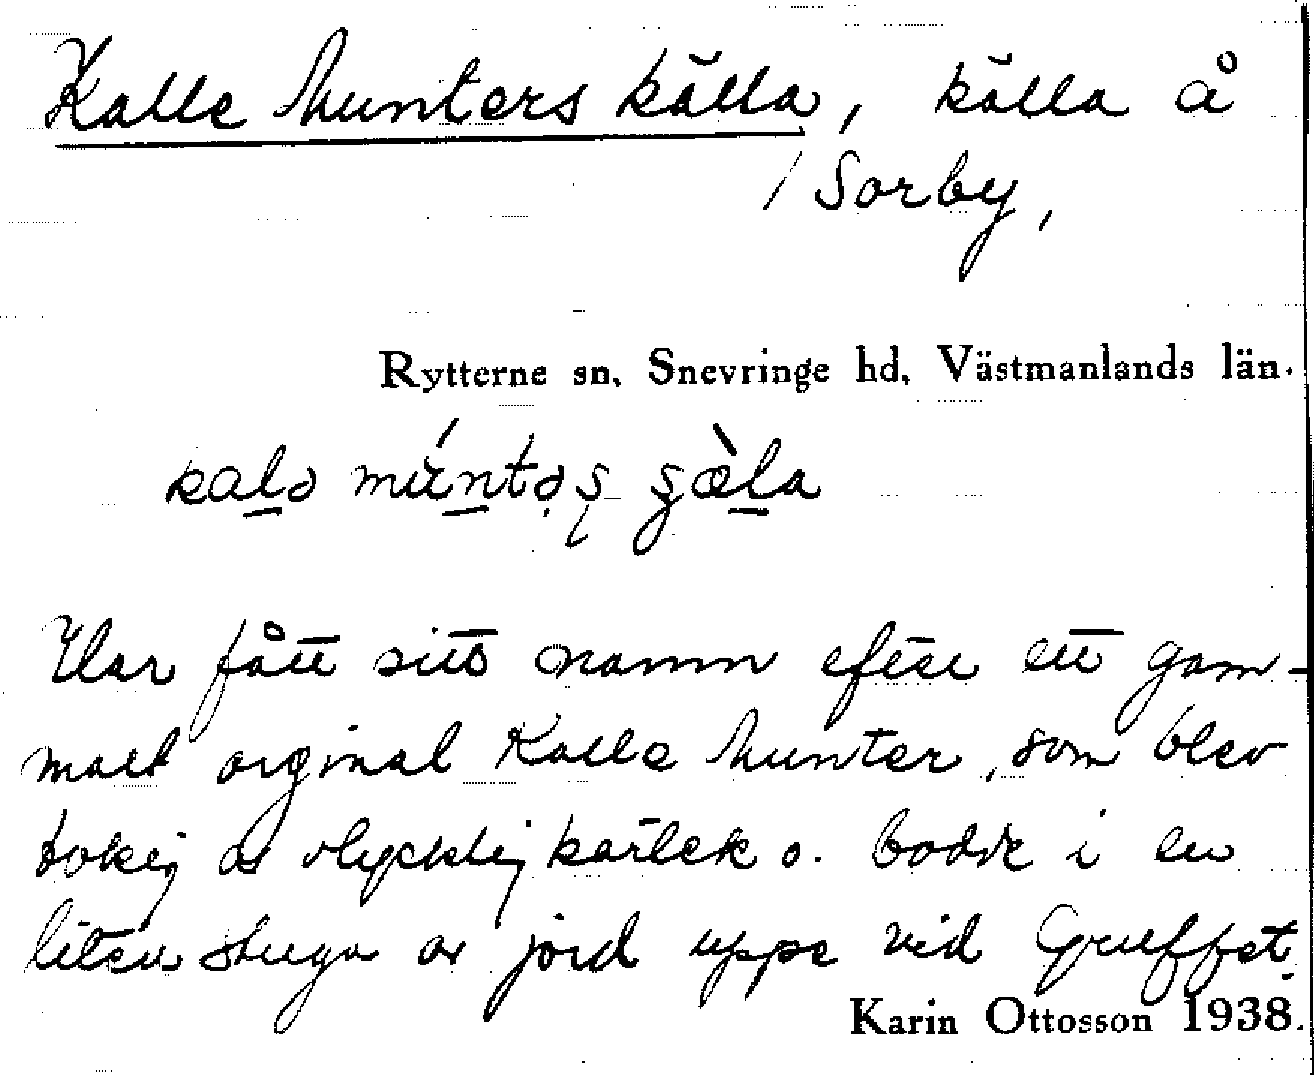 Kalle Munters källa, källa å
/ Sorby,
Rytterne sn, Snevringe hd, Västmanlands län.
kalə múntəʂ ʂæ̀la
Har fått sitt namn efter ett gam-
malt orginal Kalle Munter, som blev
tokig av olycklig kärlek o. bodde i en
liten stuga av jord uppe vid Gruffet.
Karin Ottosson 1938.